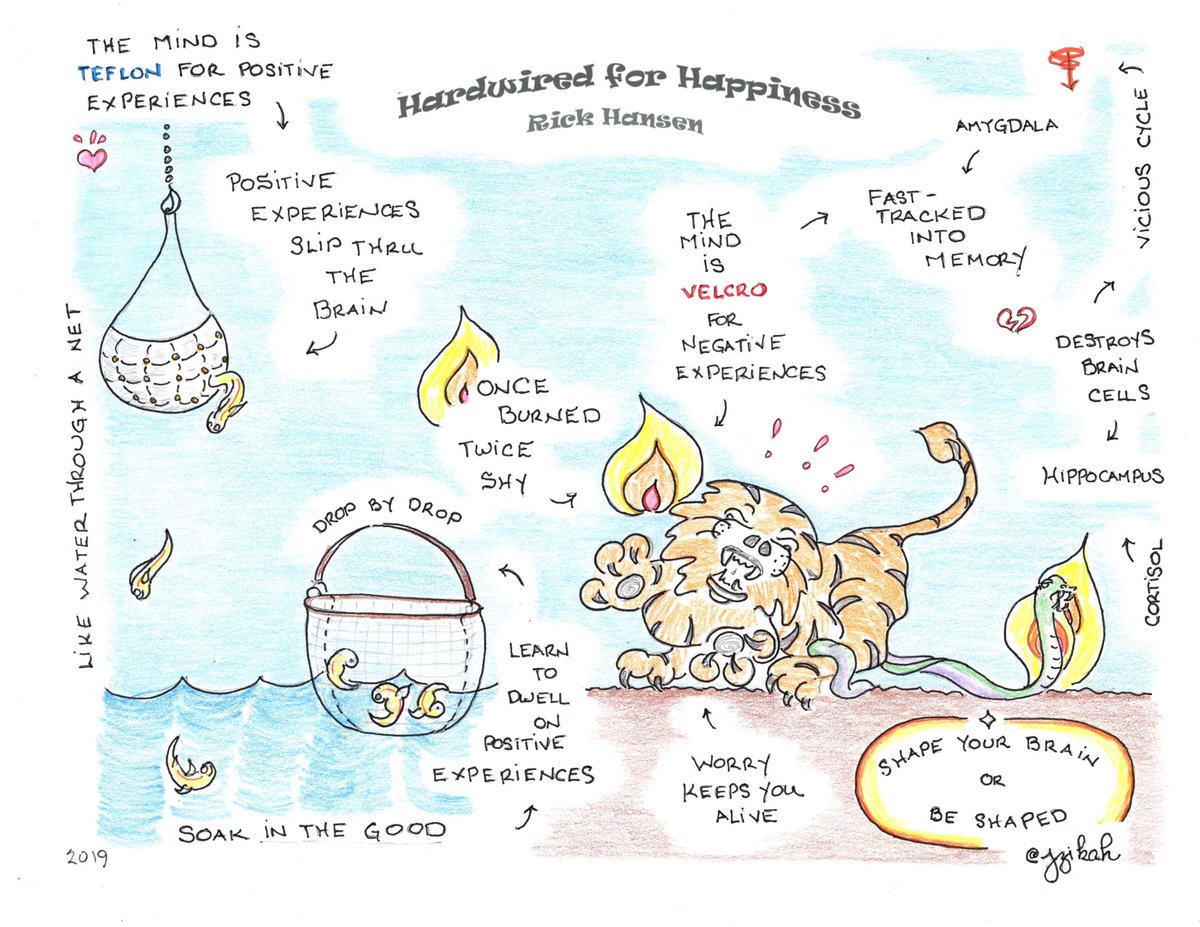 THE MIND IS
TEFLON FOR POSITIVE
EXPERIENCES
Hardwired for Happiness
Rick Hansen
POSITIVE
EXPERIENCES
SLIP THRU
THE
BRAIN
LIKE WATER THROUGH A NET
ONCE
BURNED
TWICE
SHY
THE
MIND
IS
VELCRO
FOR
NEGATIVE
EXPERIENCES
AMYGDALA
FAST-
TRACKED
INTO
MEMORY
VICIOUS CYCLE
DESTROYS
BRAIN
CELLS
HIPPOCAMPUS
CORTISOL
DROP BY DROP
LEARN
TO
DWELL
ON
POSITIVE
EXPERIENCES
SOAK IN THE GOOD
WORRY
KEEPS YOU
ALIVE
SHAPE YOUR BRAIN
OR
BE SHAPED
2019
@yzikah